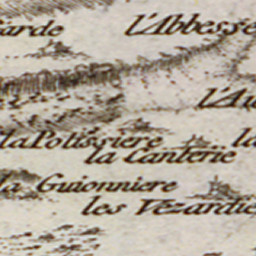 l'Abbesse
la Potissiere
la Canterie
la Guionniere
les Vezardie